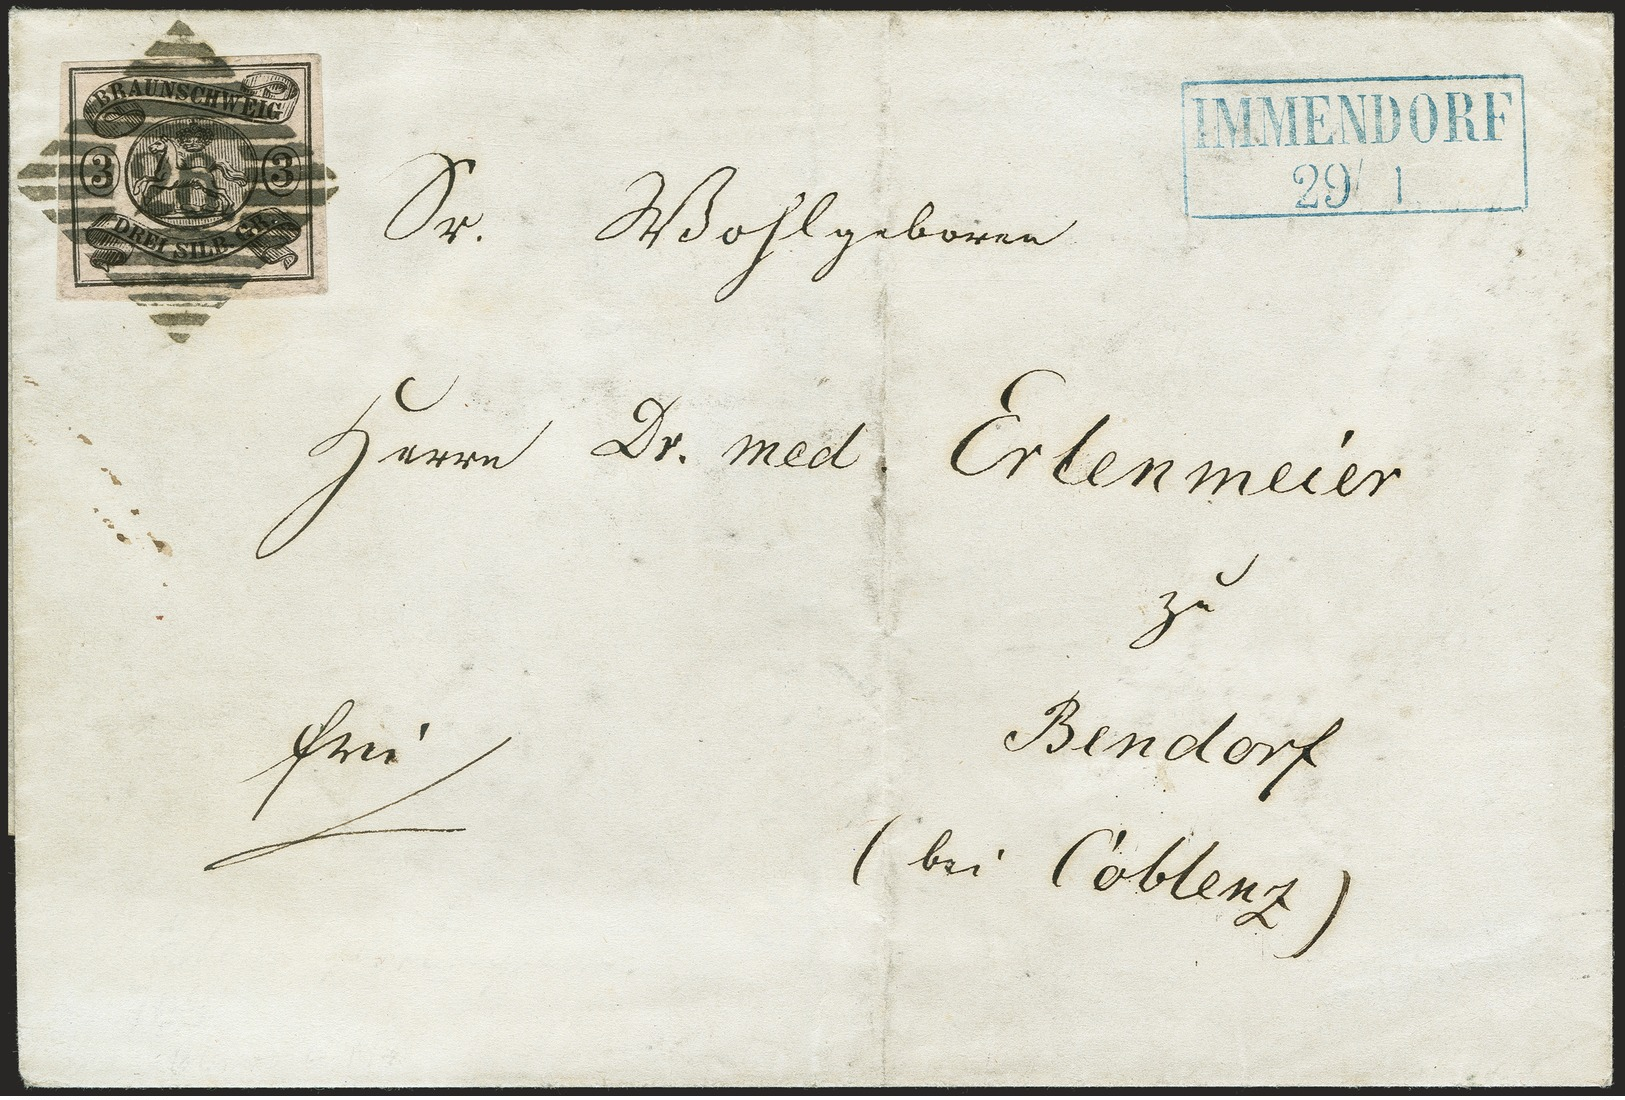 BRAUNSCHWEIG
3 3
DREI SILB. GR.
IMMENDORF
29/ 1
Sr. Wohlgeboren
Herrn Dr. med. Erlenmeier
zu
Bendorf
frei
(bei Coblenz)